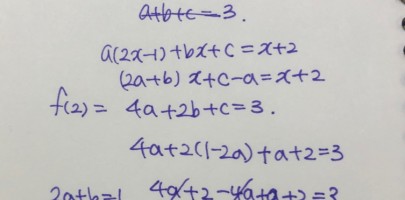 a+b+c=3.
a(2x-1)+bx+c=x+2
(2a+b)x+c-a=x+2
f(2)= 4a+2b+c=3.
4a+2(1-2a)+a+2=3
2a+b=1 4a+2-4a+a+2=3